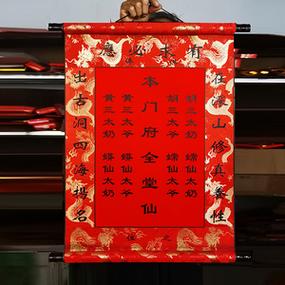 有求必應
在深山修真養性
胡三太奶
太奶
胡三太爷
太爷
本门府全堂仙
黄三太爷
太爷
黄三太奶
太奶
出古洞四海揚名